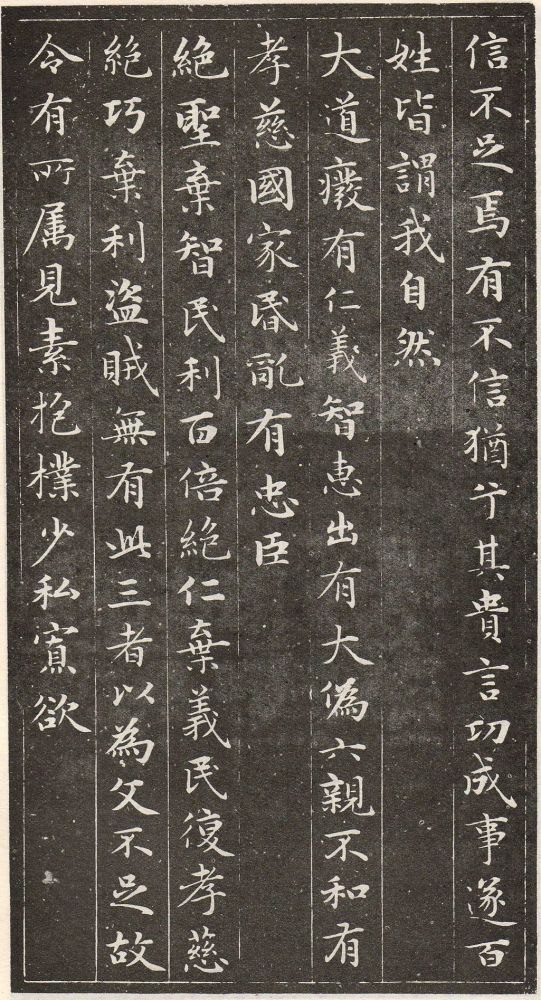 信不足焉有不信猶兮其貴言功成事遂百
姓皆謂我自然
大道癈有仁義智惠出有大偽六親不和有
孝慈國家昏亂有忠臣
絕聖棄智民利百倍絕仁棄義民復孝慈
絕巧棄利盜賊無有此三者以為文不足故
令有所属見素抱樸少私寡欲